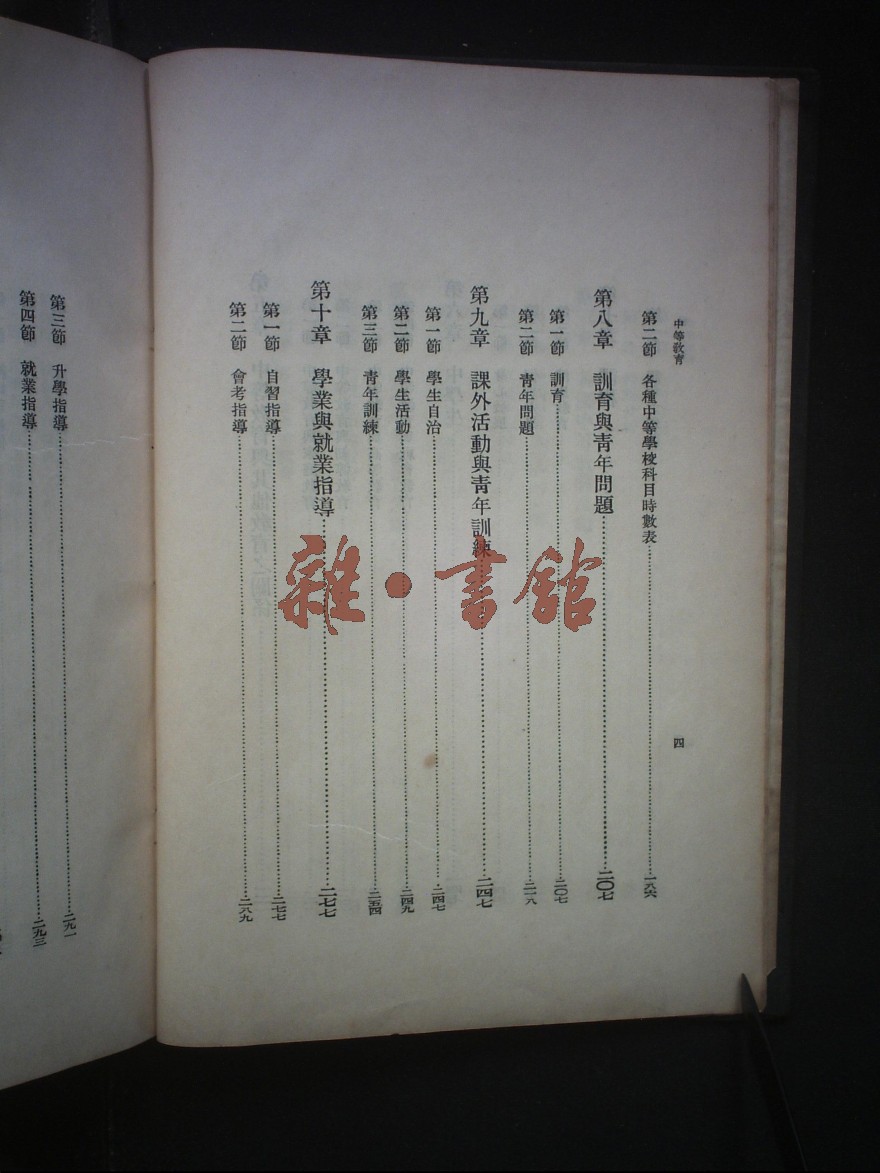 中等教育
四
第二節 各種中等學校科目時數表……一八六
第八章 訓育與青年問題……二〇七
第一節 訓育……二〇七
第二節 青年問題……二一八
第九章 課外活動與青年訓練……二四七
第一節 學生自治……二四七
第二節 學生活動……二四九
第三節 青年訓練……二五四
第十章 學業與就業指導……二七七
第一節 自習指導……二七七
第二節 會考指導……二八九
第三節 升學指導……二九一
第四節 就業指導……二九三
雜·書館